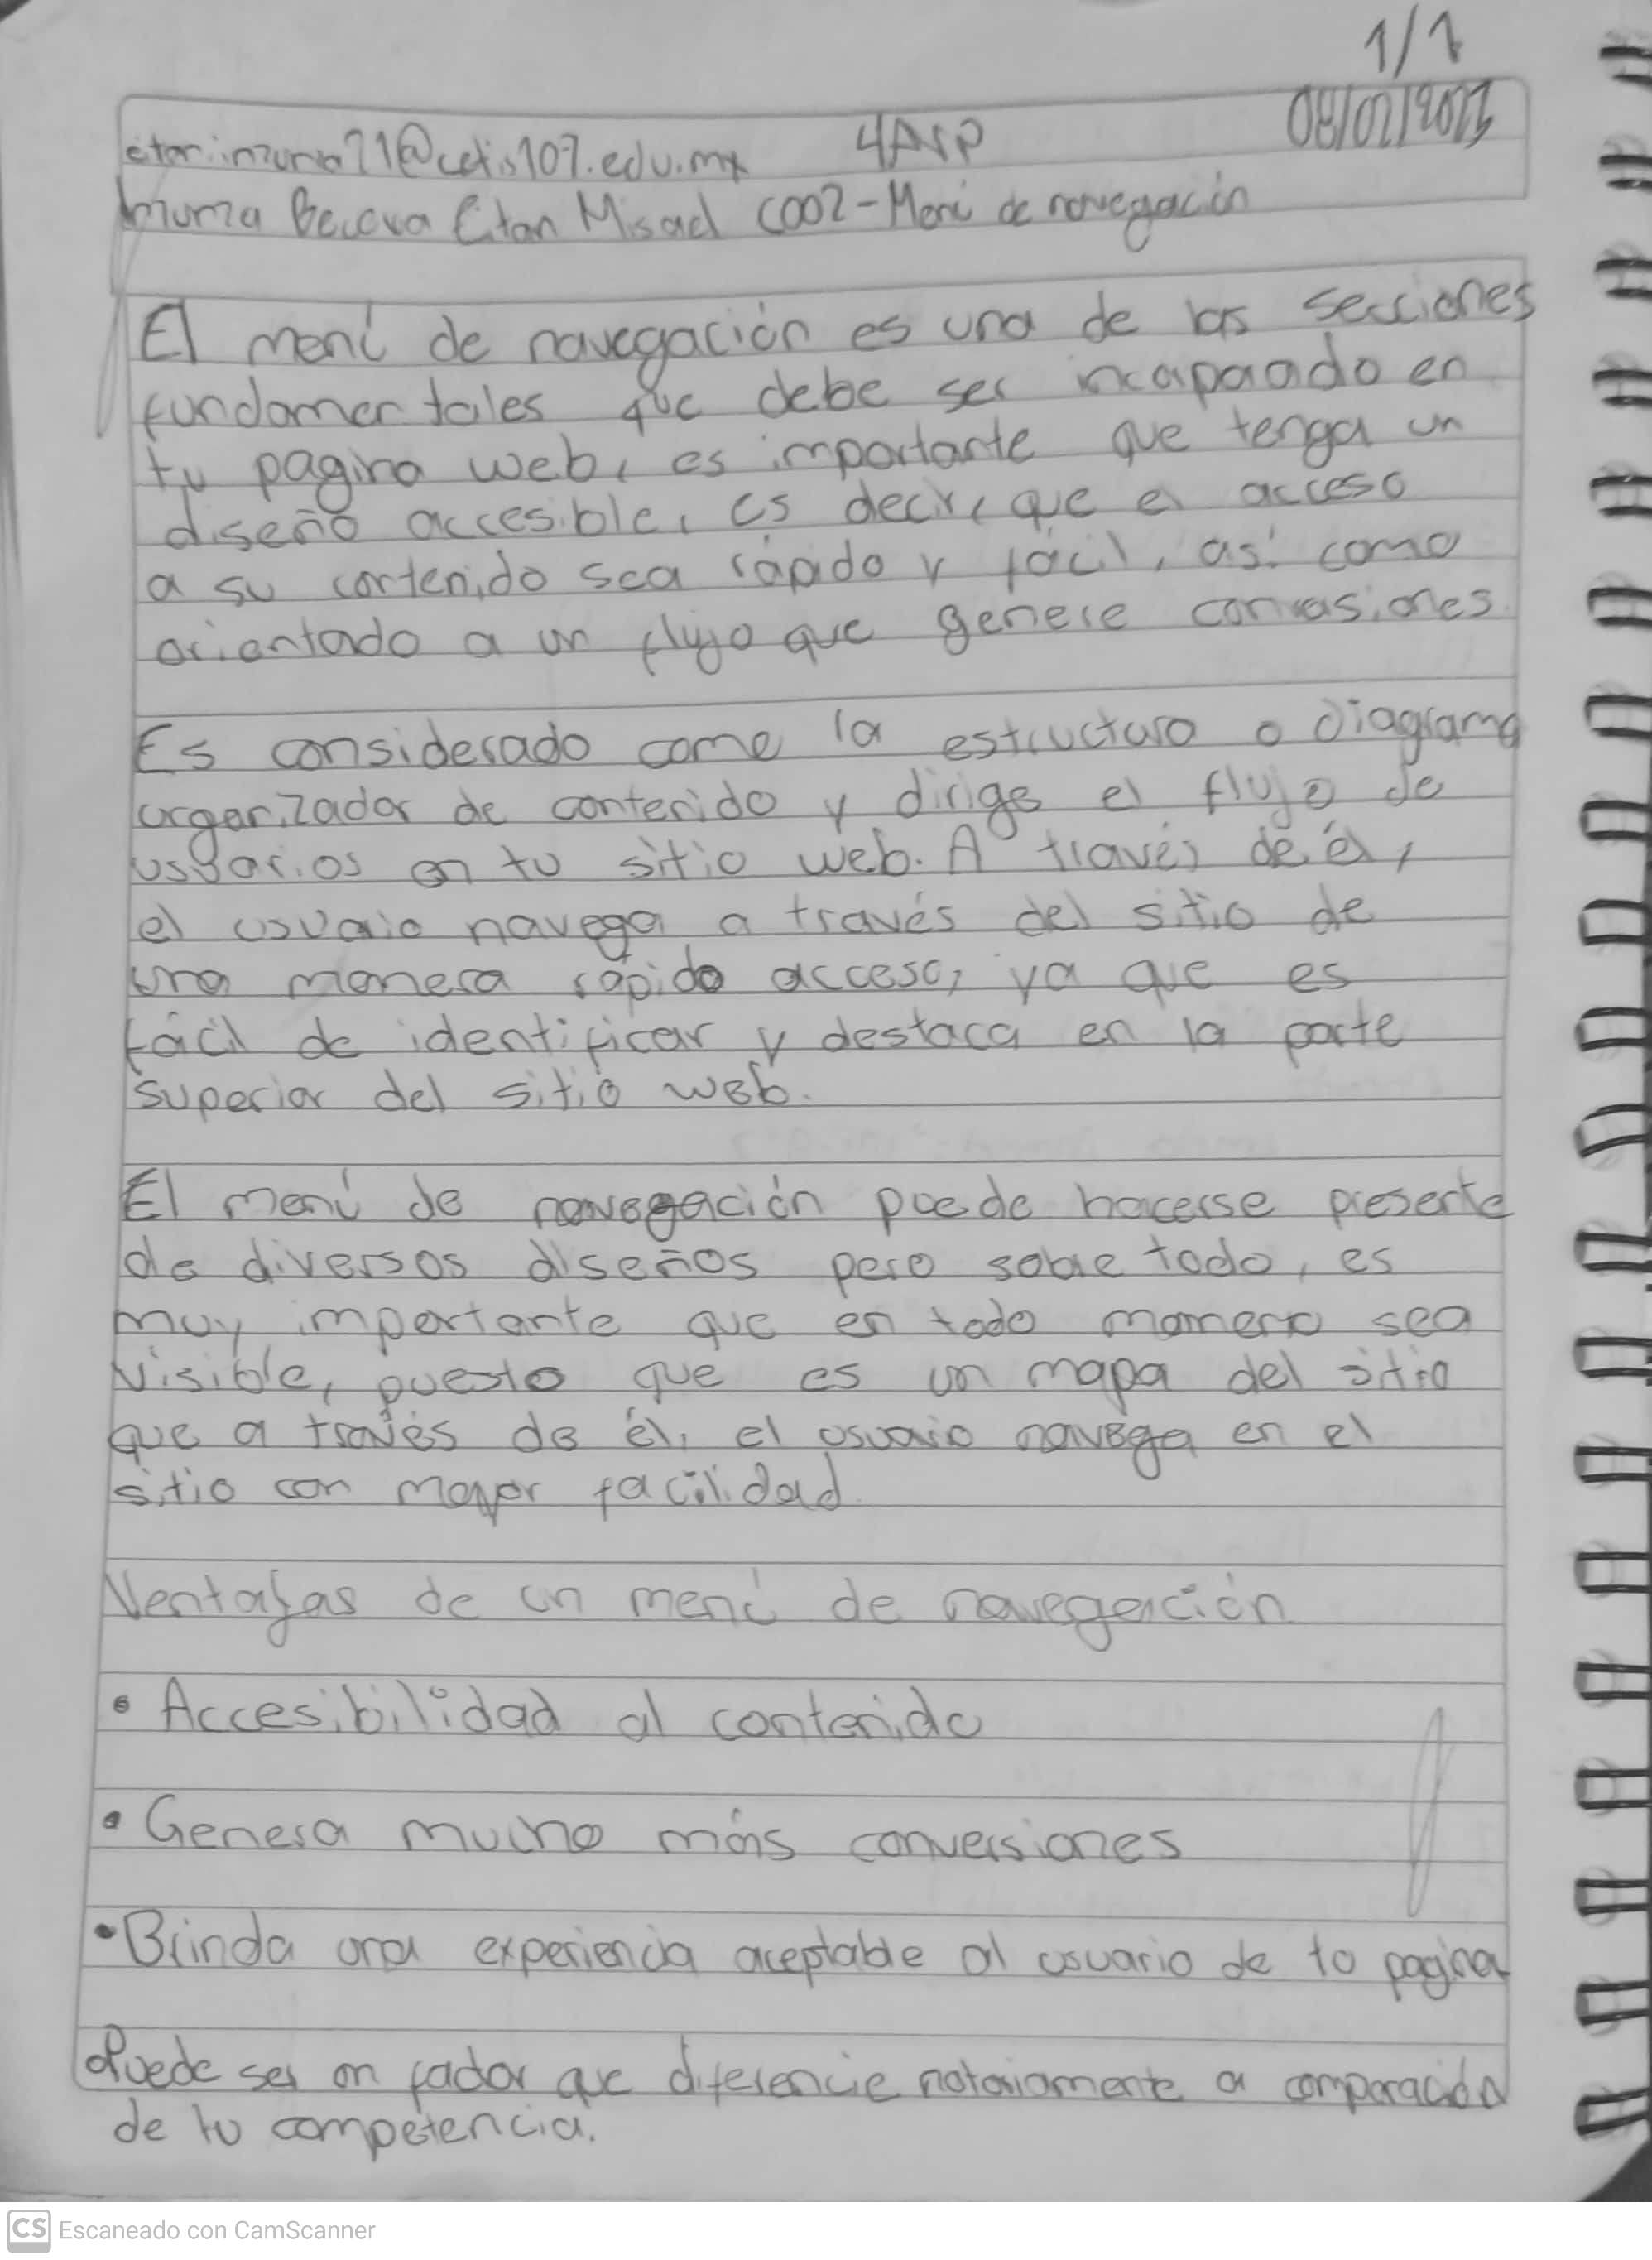 1/1
08/02/2023
4ASP
@cetis107.edu.mx
Eitan Misael C002-Menú de navegación
El menú de navegación es una de las secciones
fundamentales que debe ser incapaado en
tu pagina web, es importante que tenga un
diseño accesible, es decir, que el acceso
a su contenido sea rápido y fácil, así como
orientado a un flujo que genere conversiones
Es considerado como la estructura o diagrama
organizador de contenido y dirige el flujo de
usuarios en tu sitio web. A través de él,
el usuario navega a través del sitio de
una manera rápido acceso, ya que es
fácil de identificar y destaca en la parte
superior del sitio web.
El menú de navegación puede hacerse presente
de diversos diseños pero sobre todo, es
muy importante que en todo momento sea
visible, puesto que es un mapa del sitio
que a través de él, el usuario navega en el
sitio con mayor facilidad.
Ventajas de un menú de navegación
• Accesibilidad al contenido
• Genera mucho más conversiones
• Brinda una experiencia aceptable al usuario de tu pagina
• Puede ser un factor que diferencie notoriamente a comparación
de tu competencia.
CS Escaneado con CamScanner